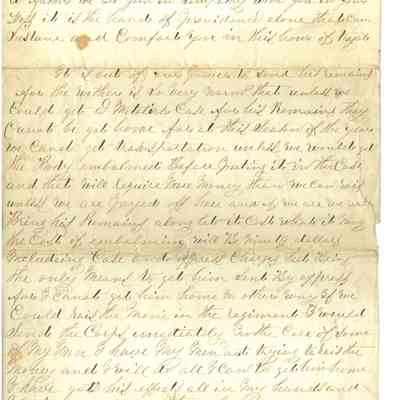 it is the hand of Providence alone that can
Sustane and Comfort you in this hour of
It is out of our power to send his remains
for the wether is so very warm that unless we
Could get a Metalic Case for his Remains they
Cannot be got home for at this Season of the year
we Cant get transportation unless we would get
the Body embalmed Before puting it in the Case
and that will require more Money than we Can rais
unless we are payed off here and if we are we will
Bring his Remains along let it Cost what it may
the Cost of embalming will Be Ninty dollars
Including Case and express Charges that Being
the only Means to get him Sent By express
for I Canot get him home no other way if we
Could rais the Mony in the regiment I would
Send the Corps imeditatly in the Care of Some
of My Men I have My Men out trying to rais the
Money and I will do all I Can to get him home
I have got his effects all in My hands and